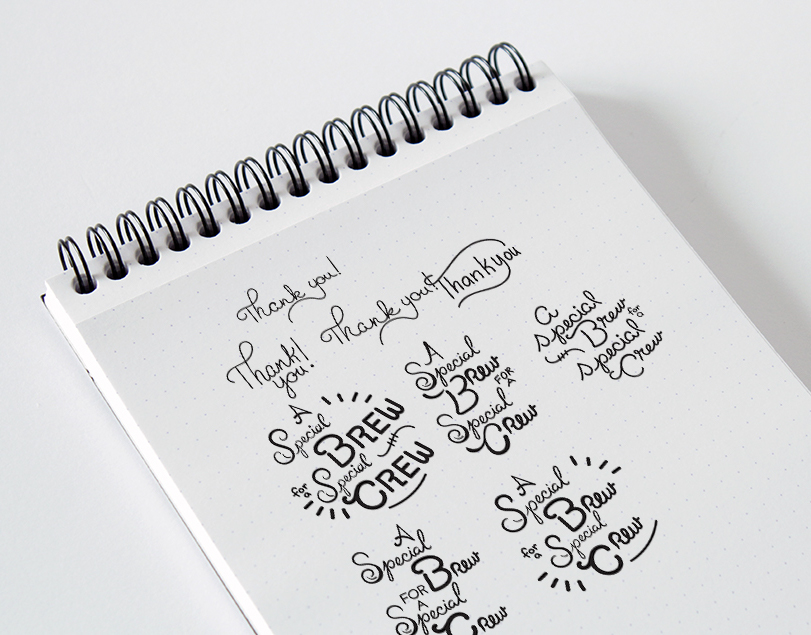 Thank you!
Thank you!
Thank you
Thank!
you!
A
Special
BREW
for a
Special
CREW
A
Special
Brew
FOR
A
Special
Crew
a
special
Brew
for a
special
Crew
A
Special
Brew
FOR
A
Special
Crew
A
Special
Brew
for a
Special
Crew